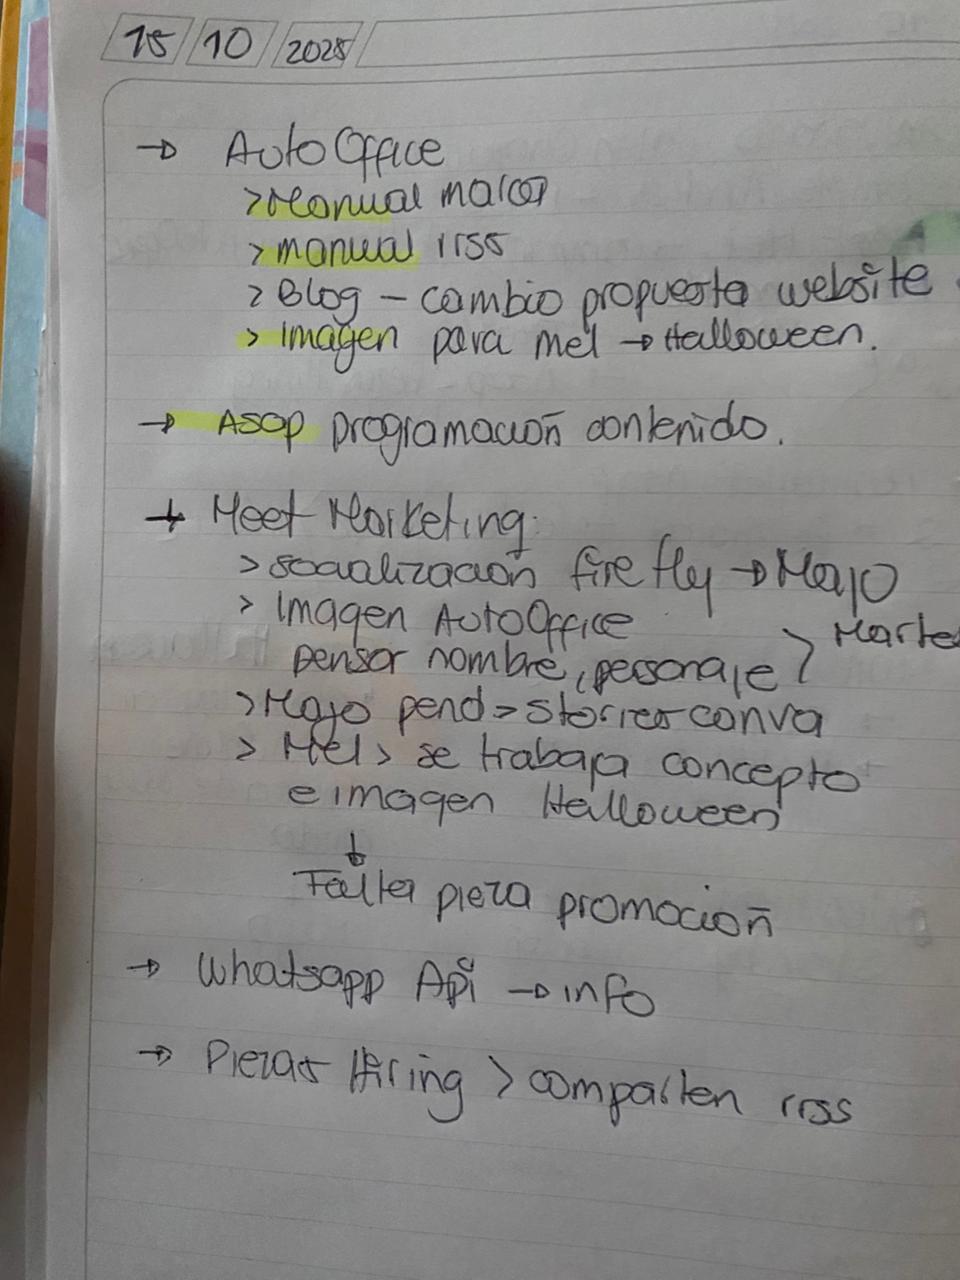 15 / 10 / 2025
→ AutoOffice
> Manual marca
> manual rrss
> Blog – cambio propuesta website
> Imagen para mel → Halloween.
→ Asap programación contenido.
→ Meet Marketing:
> socialización firefly → Majo
> Imagen AutoOffice
pensar nombre, personaje } Marte
> Majo pend > stories canva
> Mel > se trabaja concepto
e imagen Halloween
↓
Falta pieza promoción
→ Whatsapp Api → info
→ Piezas Hiring > comparten rrss